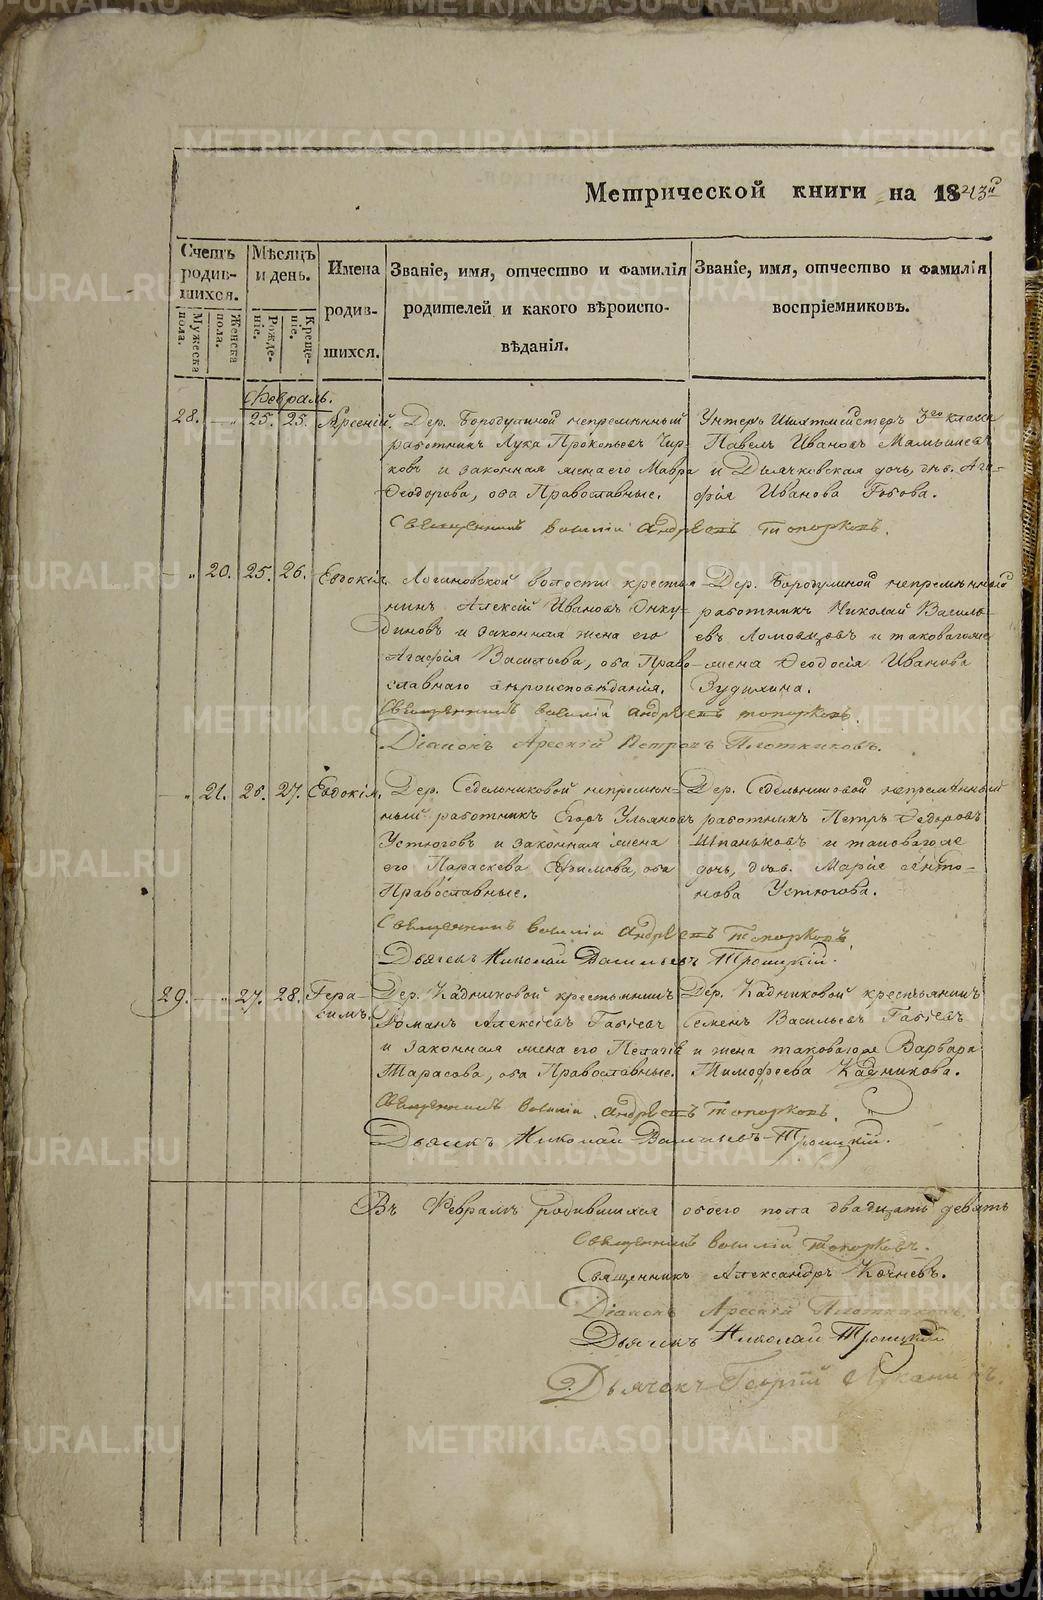 Метрической книги на 1843й
Счетъ родив-шихся.
Мужеска пола.
Женска пола.
Мѣсяцъ и день.
Рожде-ніе.
Креще-ніе.
Имена
родив-
шихся.
Званіе, имя, отчество и фамилія
родителей и какого вѣроиспо-
вѣданія.
Званіе, имя, отчество и фамилія
воспріемниковъ.
Февраль.
28. — „ 25. 25. Арсеній.
Дер. Бородулиной непремѣнный
работникъ Лука Прокопьевъ Чир-
ковъ и законная жена его Мавра
Феодорова, оба Православные.
Унтеръ Шихтмейстеръ 3го класса
Павелъ Ивановъ
и Дьячковская дочь, Ага-
фія Иванова
Священникъ Василій Андреевъ Топорковъ.
— „ 20. 25. 26. Евдокія.
Логиновской волости крестья-
нинъ Алексій Ивановъ Онку-
диновъ и законная жена его
Агафія Васильева, оба Право-
славнаго вѣроисповѣданія.
Дер. Бородулиной непремѣнный
работникъ Николай Василь-
евъ и таковагоже
жена Феодосія Иванова
Зудихина.
Священникъ Василій Андреевъ Топорковъ.
Діаконъ Арсеній Петровъ Плотниковъ.
— „ 21. 26. 27. Евдокія.
Дер. Седельниковой непремѣн-
ный работникъ Егоръ Ульяновъ
Устюговъ и законная жена
его Параскева Ефимова, оба
Православные.
Дер. Седельниковой непремѣнный
работникъ Петръ Федоровъ
Шпаньковъ и таковагоже
дочь, Марія Анто-
нова Устюгова.
Священникъ Василій Андреевъ Топорковъ.
Дьячекъ Николай Васильевъ Троицкій.
29. — „ 27. 28. Гера-
симъ.
Дер. Кадниковой крестьянинъ
Романъ Алексіевъ Габіевъ
и законная жена его Пелагія
Тарасова, оба Православные.
Дер. Кадниковой крестьянинъ
Семенъ Васильевъ Габіевъ
и жена таковагоже Варвара
Тимофеева Кадникова.
Священникъ Василій Андреевъ Топорковъ.
Дьячекъ Николай Васильевъ Троицкій.
Въ Февралѣ родившихся обоего пола двадцать девять
Священникъ Василій Топорковъ.
Священникъ Александръ Кочневъ.
Діаконъ Арсеній Плотниковъ.
Дьячекъ Николай Троицкій
Дьячекъ Георгій Луканинъ.
METRIKI.GASO-URAL.RU